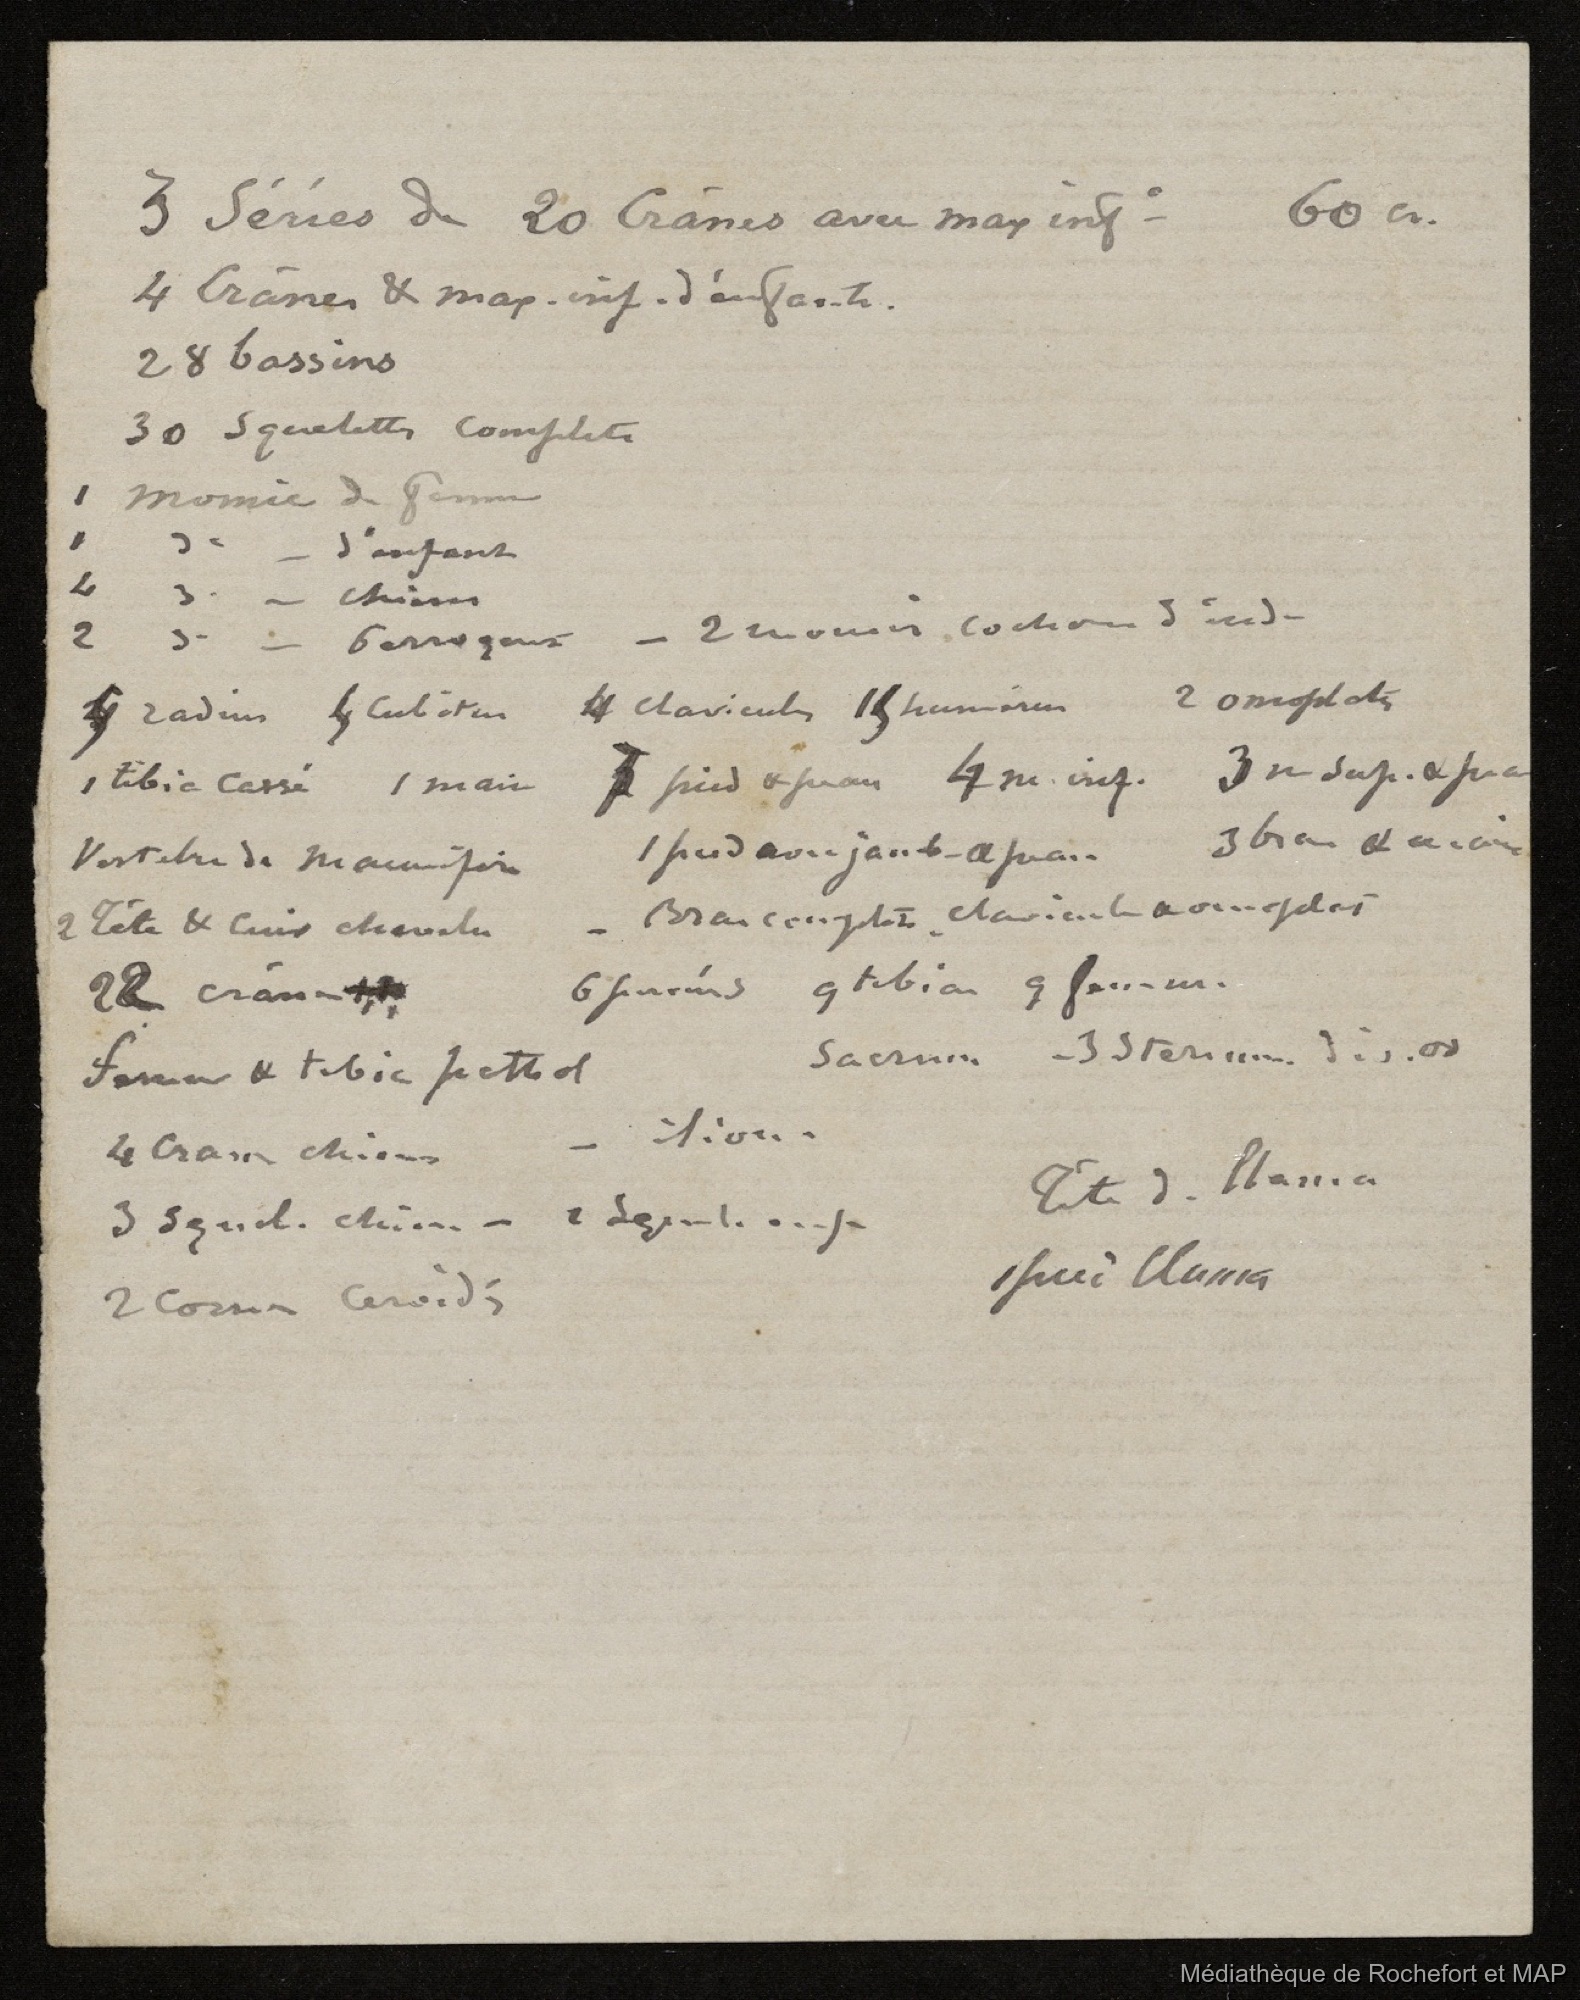 3 Séries de 20 Crânes avec max inf<sup>re</sup> 60 cr.
4 Crânes & max. inf. d'enfants.
28 bassins
30 Squelettes complets
1 momie de femme
1 d° — d'enfant
4 d° — chiens
2 d° — Perroquets — 2 momies cochons d'inde
radius Cubitus 4 clavicules humérus 2 omoplates
1 tibia cassé 1 main pied & peau 4 m. inf. 3 m sup. & peau
Vertebre de Mammifère 1 pied avec jambe & peau 3 bras & mains
2 Tête & Cuir chevelu — Bras complets, clavicule & omoplate
22 crânes 6 péronés 9 tibias 9 femurs.
femur & tibia path ol Sacrum - 3 Sternum. div. os
4 Cranes chiens — ilions
3 Squel. chiens — Squel. enf Tête de Llama
2 Cornes Cervidés 1 pied Llama
Médiathèque de Rochefort et MAP